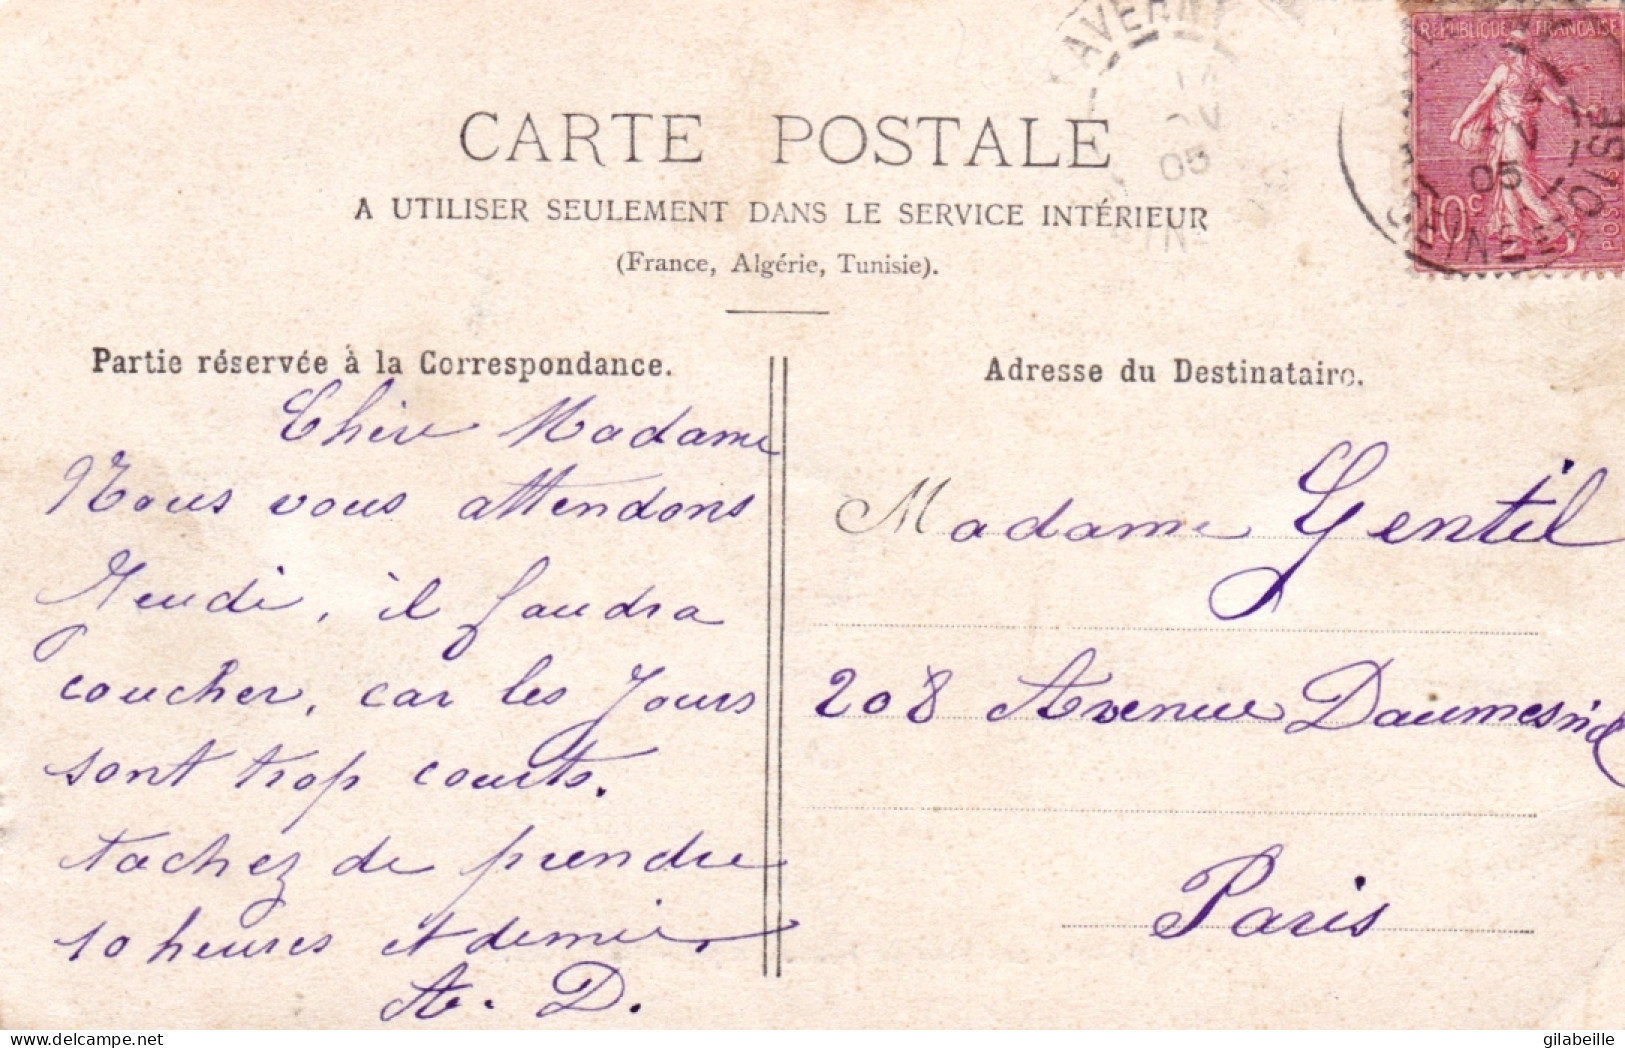 TAVERNY
05
RÉPUBLIQUE FRANÇAISE
10c
POSTES
05
SEINE ET OISE
CARTE POSTALE
A UTILISER SEULEMENT DANS LE SERVICE INTÉRIEUR
(France, Algérie, Tunisie).
Partie réservée à la Correspondance.
Chère Madame
Nous vous attendons
Jeudi, il faudra
coucher, car les Jours
sont trop courts.
tachez de prendre
10 heures et demie,
A. D.
Adresse du Destinataire.
Madame Gentil
208 Avenue Daumesnil
Paris
delcampe.net
gilabeille